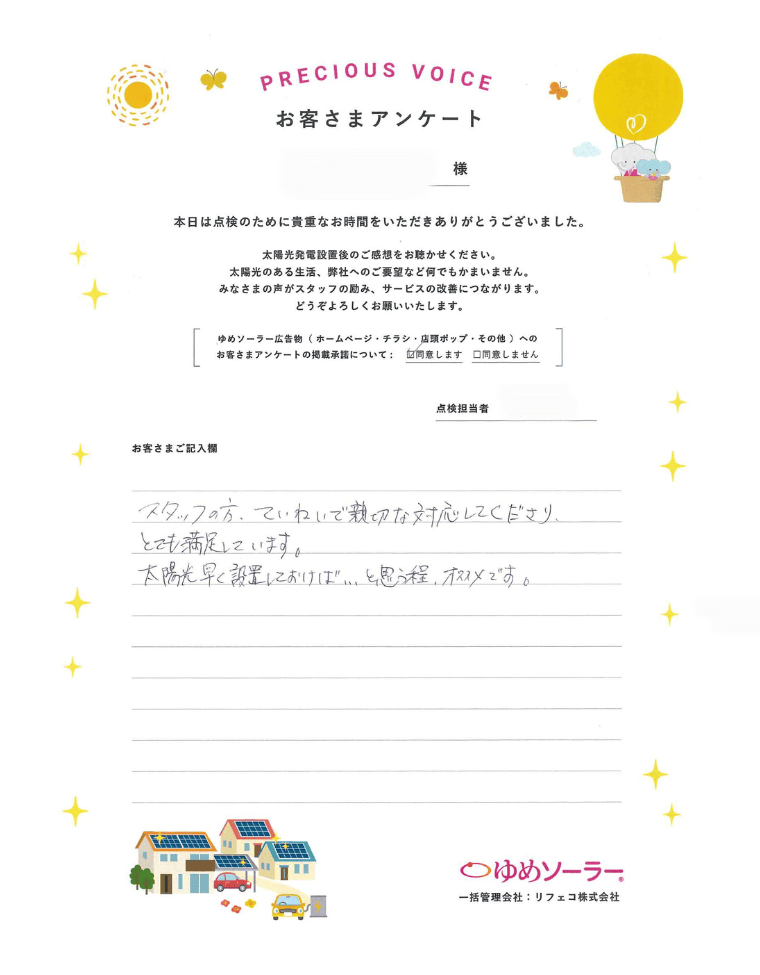 PRECIOUS VOICE
お客さまアンケート
様
本日は点検のために貴重なお時間をいただきありがとうございました。
太陽光発電設置後のご感想をお聴かせください。
太陽光のある生活、弊社へのご要望など何でもかまいません。
みなさまの声がスタッフの励み、サービスの改善につながります。
どうぞよろしくお願いいたします。
ゆめソーラー広告物（ホームページ・チラシ・店頭ポップ・その他）への
お客さまアンケートの掲載承諾について： ☑同意します □同意しません
点検担当者
お客さまご記入欄
スタッフの方、ていねいで親切な対応してくださり、
とても満足しています。
太陽光早く設置しておけば…と思う程、オススメです。
ゆめソーラー®
一括管理会社：リフェコ株式会社